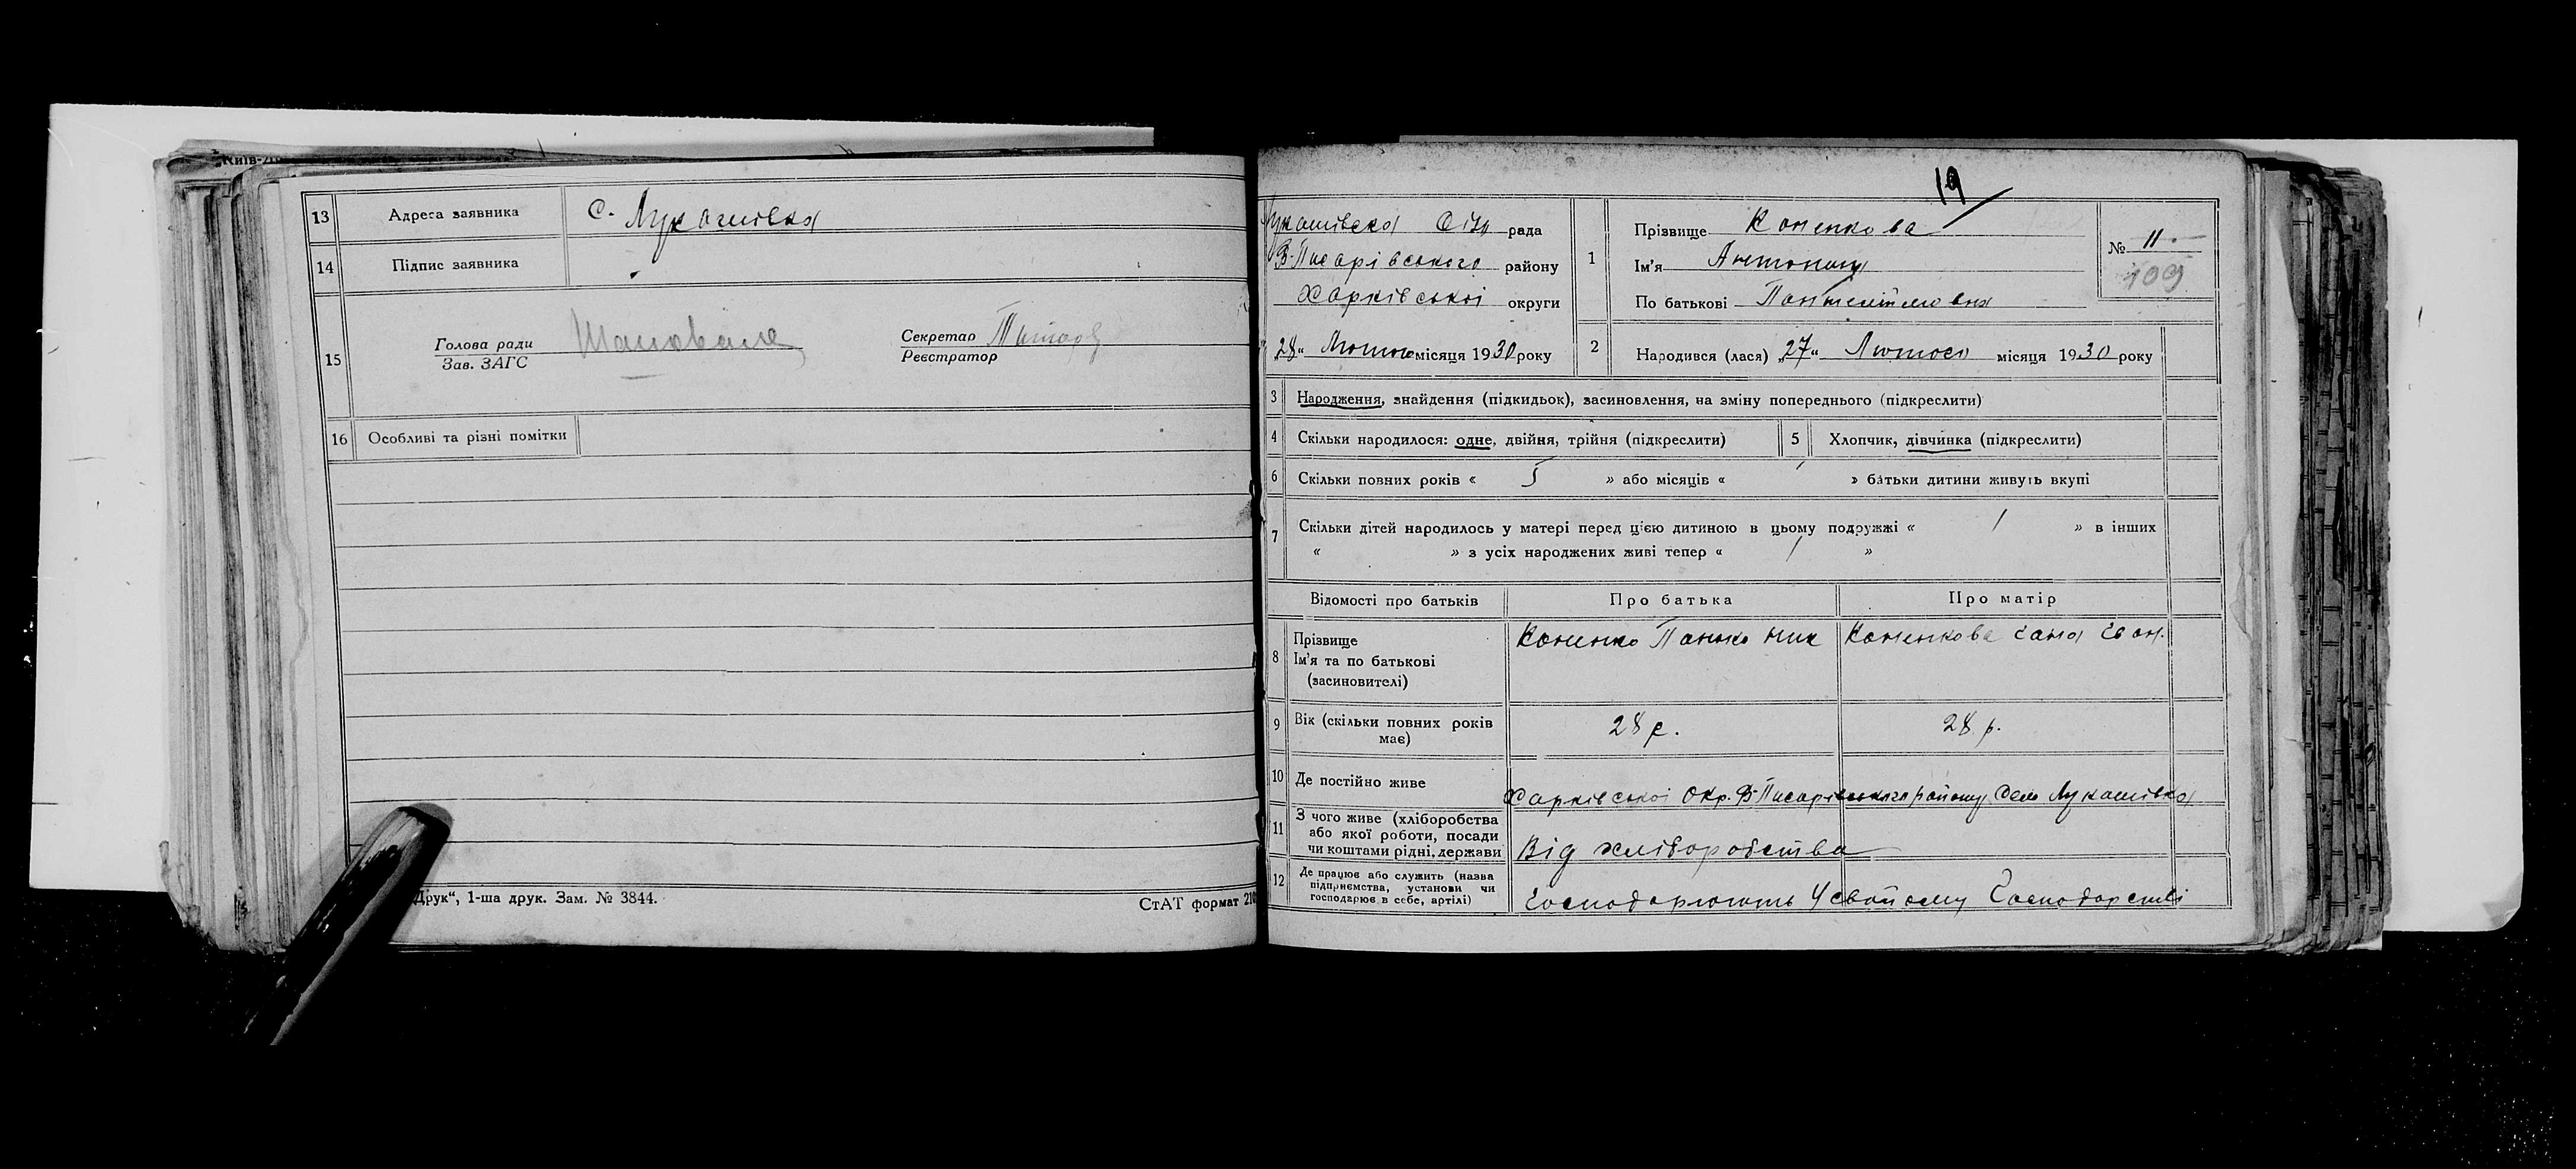 Київ-Др
13 Адреса заявника с. Лукашівка
14 Підпис заявника
15 Голова ради Шаповала Секретар
Зав. ЗАГС Реєстратор
16 Особливі та різні помітки
Друк“, 1-ша друк. Зам. № 3844.
СтАТ формат 210
19
Лукашівска Сіль рада
В-Писарівського району
Харківської округи
„28“ Лютого місяця 1930 року
1 Прізвище Коненкова
Ім'я Антонина
По батькові Пантелеймовна
№ 11
109
2 Народився (лася) „27“ Лютого місяця 1930 року
3 Народження, знайдення (підкидьок), засиновлення, на зміну попереднього (підкреслити)
4 Скільки народилося: одне, двійня, трійня (підкреслити) 5 Хлопчик, дівчинка (підкреслити)
6 Скільки повних років « 5 » або місяців « » батьки дитини живуть вкупі
7 Скільки дітей народилось у матері перед цією дитиною в цьому подружжі « 1 » в інших
« » з усіх народжених живі тепер « 1 »
Відомості про батьків Про батька Про матір
8 Прізвище Коненко Панько Ник Коненкова Іван.
Ім'я та по батькові
(засиновителі)
9 Вік (скільки повних років 28 р. 28 р.
має)
10 Де постійно живе Харківської Окр. В-Писарівського району Село Лукашівка
11 З чого живе (хліборобства
або якої роботи, посади
чи коштами рідні, держави Від хліборобства
12 Де працює або служить (назва
підприємства, установи чи
господарює в себе, артілі) Господарюють У свойому Господарстві